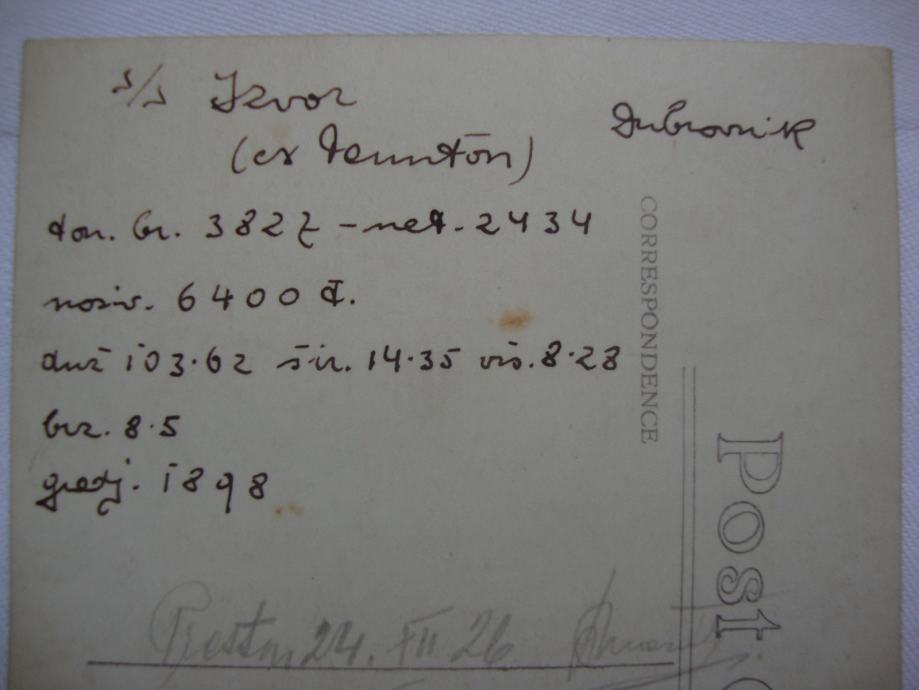 s/s Izvor
(ex Taunton)
Dubrovnik
ton. br. 3827 - net. 2434
nosiv. 6400 t.
duž 103.62 šir. 14.35 vis. 8.28
brz. 8.5
gradj. 1898
24. XII 26
CORRESPONDENCE
Post